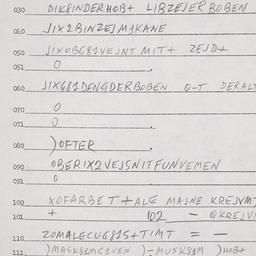 030 DIKPINDERHOB+ LIBZEJERBOBEN
040 JIX2BINZEJMIKANE
050 JIXOBG81VEJNT MIT+ ZEJD+
051 0
060 JIX681DENGDERBOBEN 0-T DERALT
070 0
071 0
080 )OFTER
090 OBERIX2VEJSNITFUNVEMEN
091 0
100 XOFARBET+ALE MAJNE KREJVMJ
101 + 102 - 0KREJVI
110 ZOMALECUG81S+TIMT = -
111 )MASK81MC1VEN )-MUSK81M )HOB+